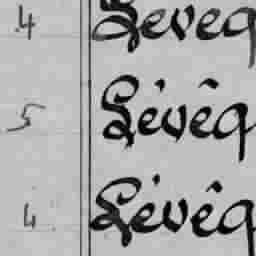 4 Levêq
5 Lévêq
4 Lévêq